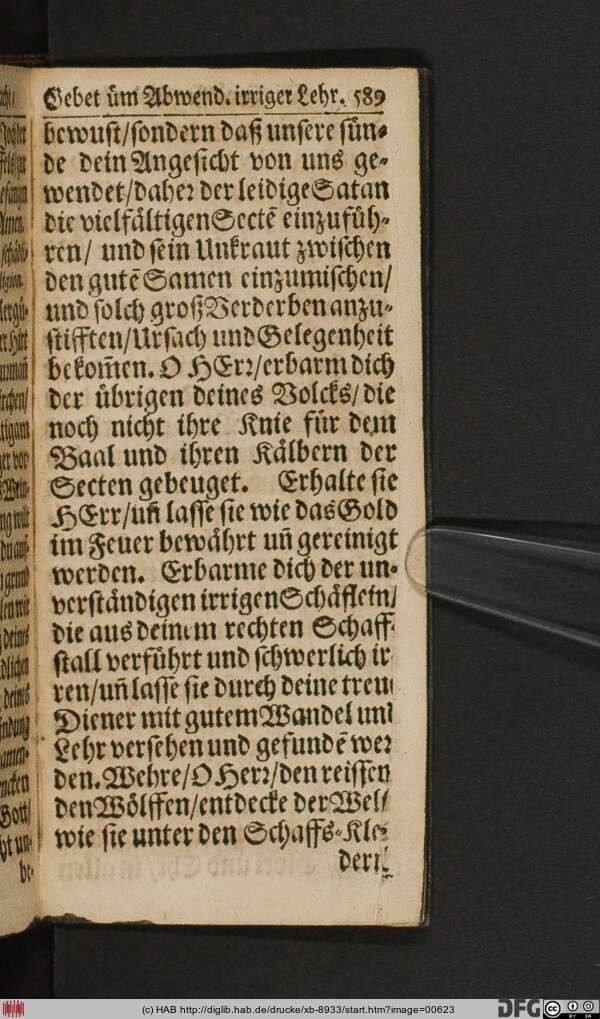 Gebet üm Abwend. irriger Lehr. 589
bewust/sondern daß unsere sün-
de dein Angesicht von uns ge-
wendet/daher der leidige Satan
die vielfältigen Sectē einzufüh-
ren/ und sein Unkraut zwischen
den gutē Samen einzumischen/
und solch groß Verderben anzu-
stifften/Ursach und Gelegenheit
bekom̃en. O HErr/erbarm dich
der übrigen deines Volcks/die
noch nicht ihre Knie für dem
Baal und ihren Kälbern der
Secten gebeuget. Erhalte sie
HErr/uñ lasse sie wie das Gold
im Feuer bewährt uñ gereinigt
werden. Erbarme dich der un-
verständigen irrigen Schäflein/
die aus deinem rechten Schaff-
stall verführt und schwerlich ir
ren/uñ lasse sie durch deine treu
Diener mit gutem Wandel und
Lehr versehen und gefundē wer
den. Wehre/O Herr/den reissen
den Wölffen/entdecke der Welt
wie sie unter den Schaffs-Klei
dern
(c) HAB http://diglib.hab.de/drucke/xb-8933/start.htm?image=00623
DFG
CC BY SA